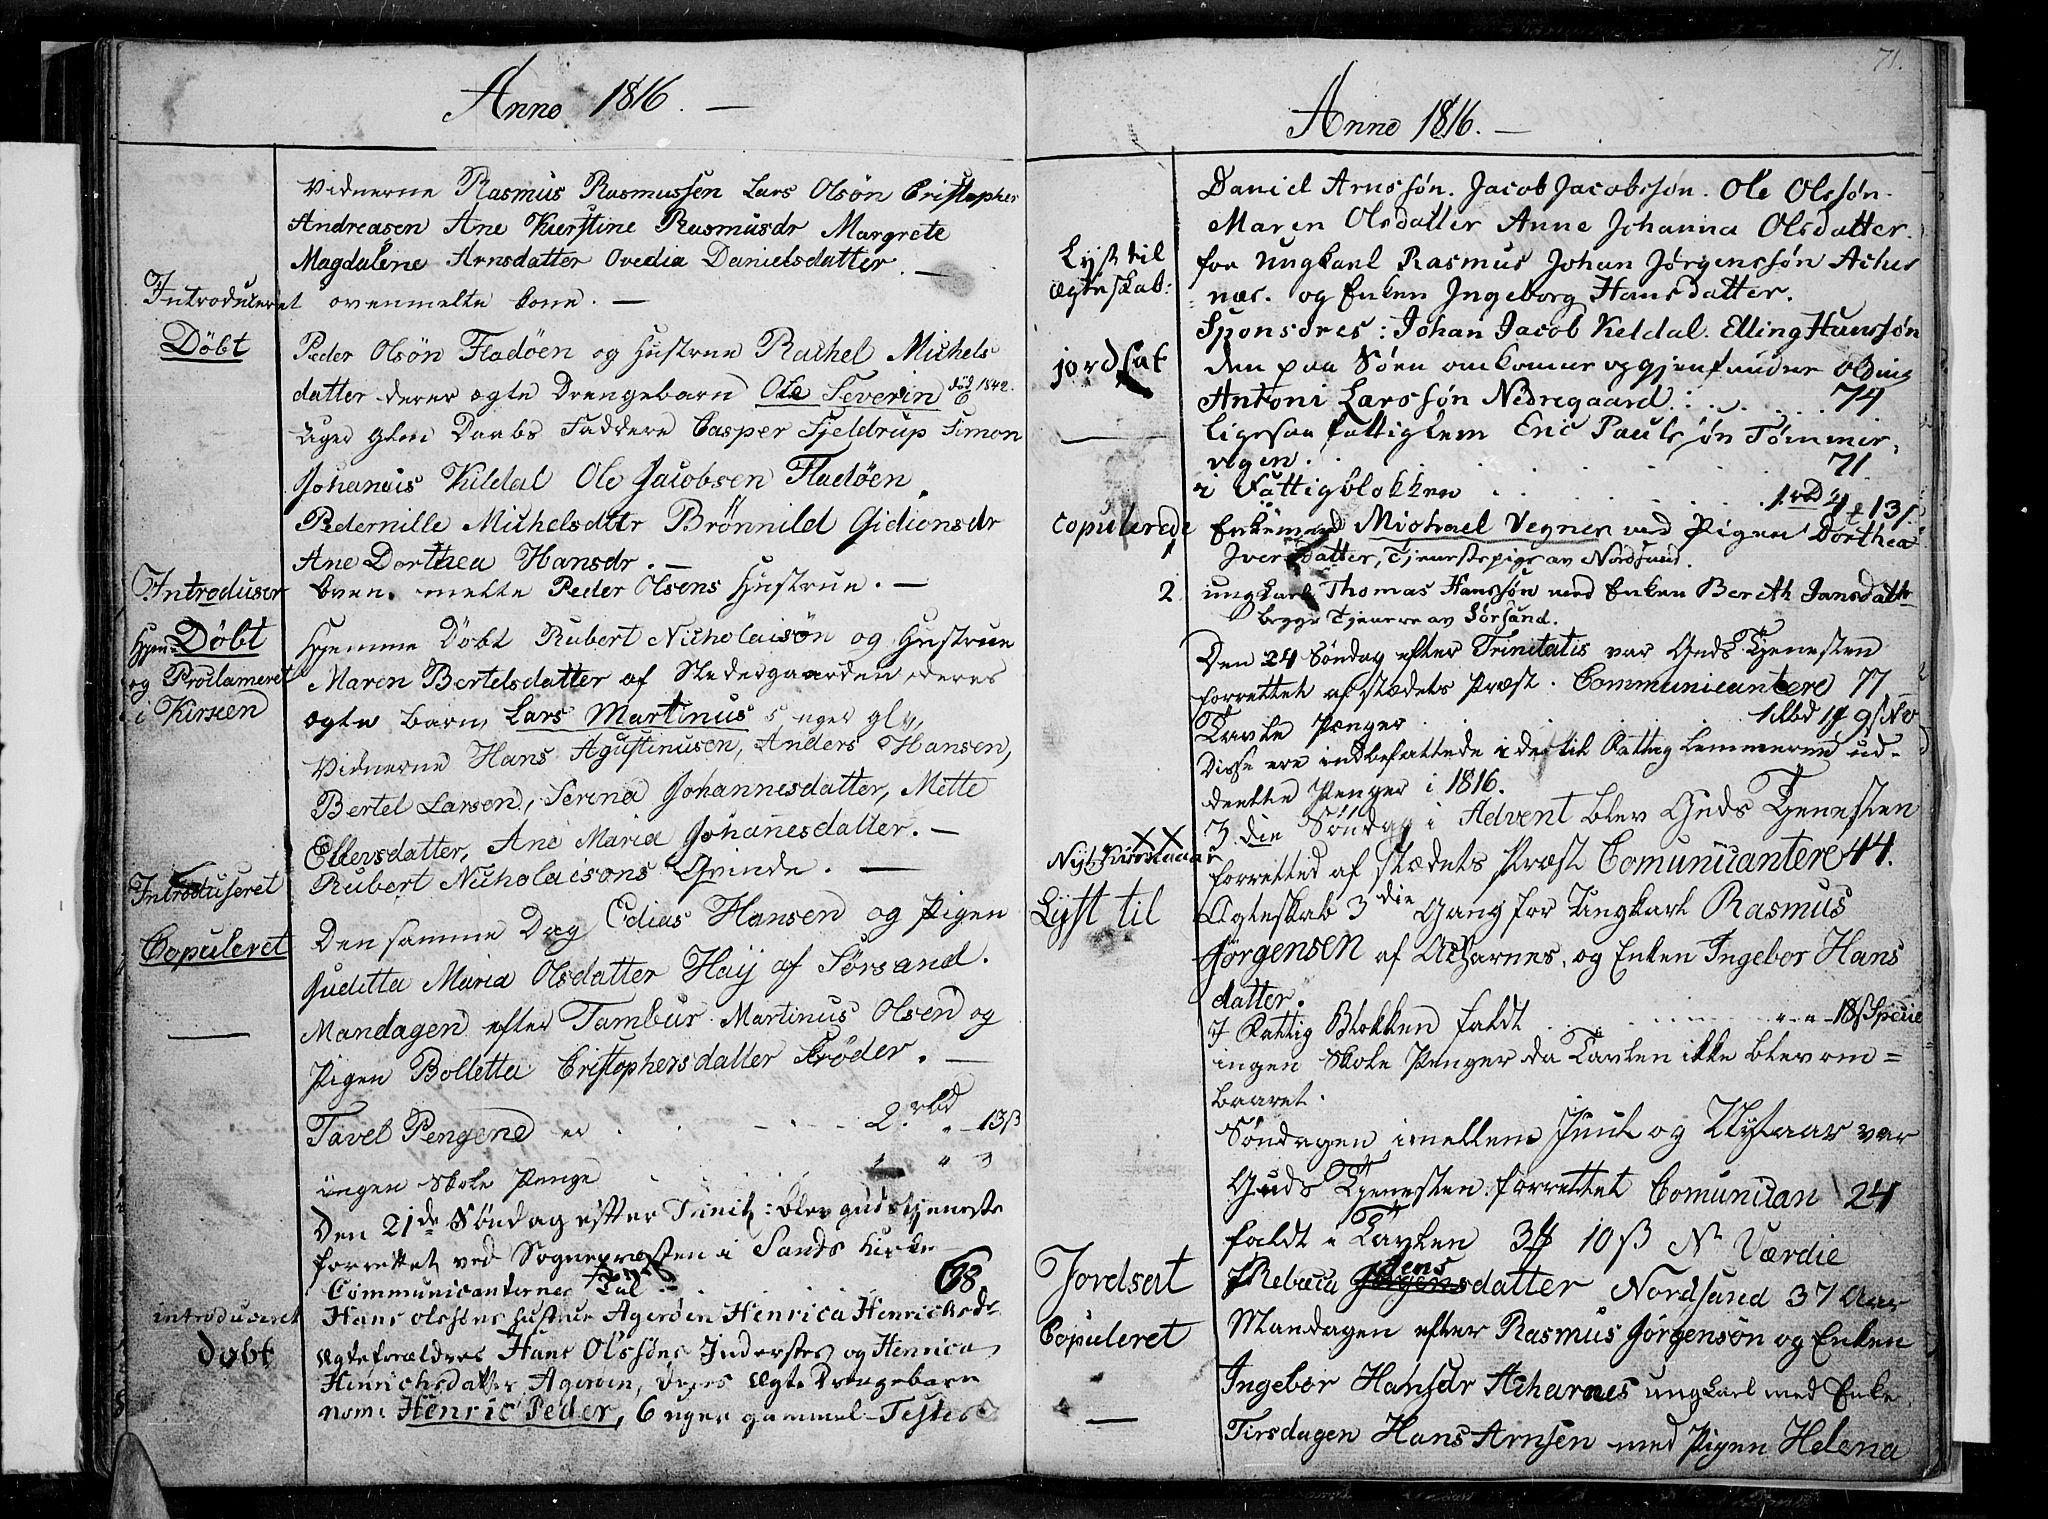 Anno 1816. —
Vidnerne Rasmus Rasmussen Lars Olsön Cristopher
Andreasen Ane Kierstine Rasmusdr Margrete
Magdalene Arnsdatter Ovedia Danielsdatter. —
Introduceret ovenmelte kone. —
Döbt Peder Olsön Fladöen og Hustrue Rachel Michels
datter derer ægte Drengebarn Ole Severin död 1842.
Uger glm Daabs Faddere Casper Fjeldrup Simon
Johannis Kildal Ole Jacobsen Fladöen.
Pedernille Michelsdatr Brönnild Gidionsdr
Ane Dorthea Hansdr. —
Introduser Oven melte Peder Olsens Hustrue. —
Hjem-Döbt Hjemme Döbt Rubert Nicholaisön og Hustrue
og Proclameret Maren Bertelsdatter af Stedesgaarden, deres
i Kirken ægte barn, Lars Martinus 5 uger gl,
Vidnerne Hans Agustinusen, Anders Hansen,
Bertel Larsen, Serena Johannesdatter, Mette
Ellersdatter, Ane Maria Johanesdatter. —
Introduseret Rubert Nicholaisons Qvinde. —
Copuleret Den samme Dag Edias Hansen og Pigen
Juditta Maria Olsdatter Haij af Sörsand.
Mandagen efter Tambur Martinus Olsen og
Pigen Bolletta Cristophersdatter Ströder. —
Tavel Pengene er . . . 2 rbd " 13 ß
ingen Skole Penge " " 3
Den 21de Söndag efter Trinit: blev gudstjeneste
forrettet ved Sognepræsten i Sands Kirke
Communicanternes Tal 68.
introduseret Hans Olssöns Hustrue Agerøen Henrica Henrichsdr
döbt Ægteforældres Hans Olssöns Inderstes og Henrica
Henrichsdatter Agerøen, deres Ægte Drengebarn
nomi Henric Peder, 6 uger gammel. Testes
71.
Anno 1816. —
Daniel Arnssøn. Jacob Jacobssøn. Ole Olssøn.
Maren Olsdatter Anne Johanna Olsdatter.
Lyst til for Ungkarl Rasmus Johan Jørgenssøn Achar
Ægteskab: næs. og Enken Ingeborg Hansdatter.
Sponsores: Johan Jacob Keldal. Elling Hanssøn
jordsat den paa Søen omkomne og gjenfundne Olding
Antoni Larssøn Nedregaard . . . 74
ligesaa fattiglem Eric Paulssøn Tømmer,
vigen . . . 71
i Fattigblokken . . . 1 rbd 4 13/
copulerede Enkemand Michael Vegner med Pigen Dorthea
1 Iversdatter, Tjenestepige av Nordsund.
2. ungkarl Thomas Hanssøn med Enken Bereth Jansdatter
begge Tjenere av Sørsund.
Den 24 Söndag efter Trinitatis var Guds Tjenesten
forrettet af stædets Præst. Communicantere 77
Tavle Penger . . . 1 Rbd
Disse ere indbefattede i de til Fattig Lemmerne ud-
deelte Penger i 1816.
3 die Söndag i Advent blev Guds Tjenesten
forretted af stædets Præst Comunicantere 44.
Lyst til Ægteskab 3 die Gang for Ungkarl Rasmus
Jörgensen af Acharnes, og Enken Ingebor Hans
datter.
I Fattig Blokken faldt . . . 18 ß
ingen Skole Penger da Tavlen ikke blev om=
baaret.
Söndagen imellem Juul og Nytaar var
Guds Tjenesten forrettet Comunican 24
faldt i Tavlen 3 10 ß N Værdie
Jordsat Rebæca Jörgensdatter Jens Nordsund 37 Aar
Copuleret Mandagen efter Rasmus Jörgensön og Enken
Ingebor Hansdr Acharnes ungkarl med Enke.
Tirsdagen Hans Arnsen med Pigen Helena